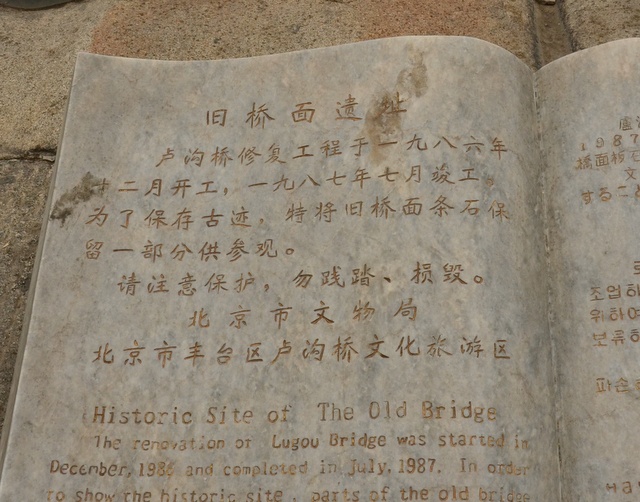 旧桥面遗址
卢沟桥修复工程于一九八六年
十二月开工，一九八七年七月竣工。
为了保存古迹，特将旧桥面条石保
留一部分供参观。
请注意保护，勿践踏、损毁。
北京市文物局
北京市丰台区卢沟桥文化旅游区
Historic Site of The Old Bridge
The renovation of Lugou Bridge was started in
December, 1986 and completed in July, 1987. In order
to show the historic site, parts of the old bridge
1987
橋面板
文
するこ
조업하
위하여
보류하
파손